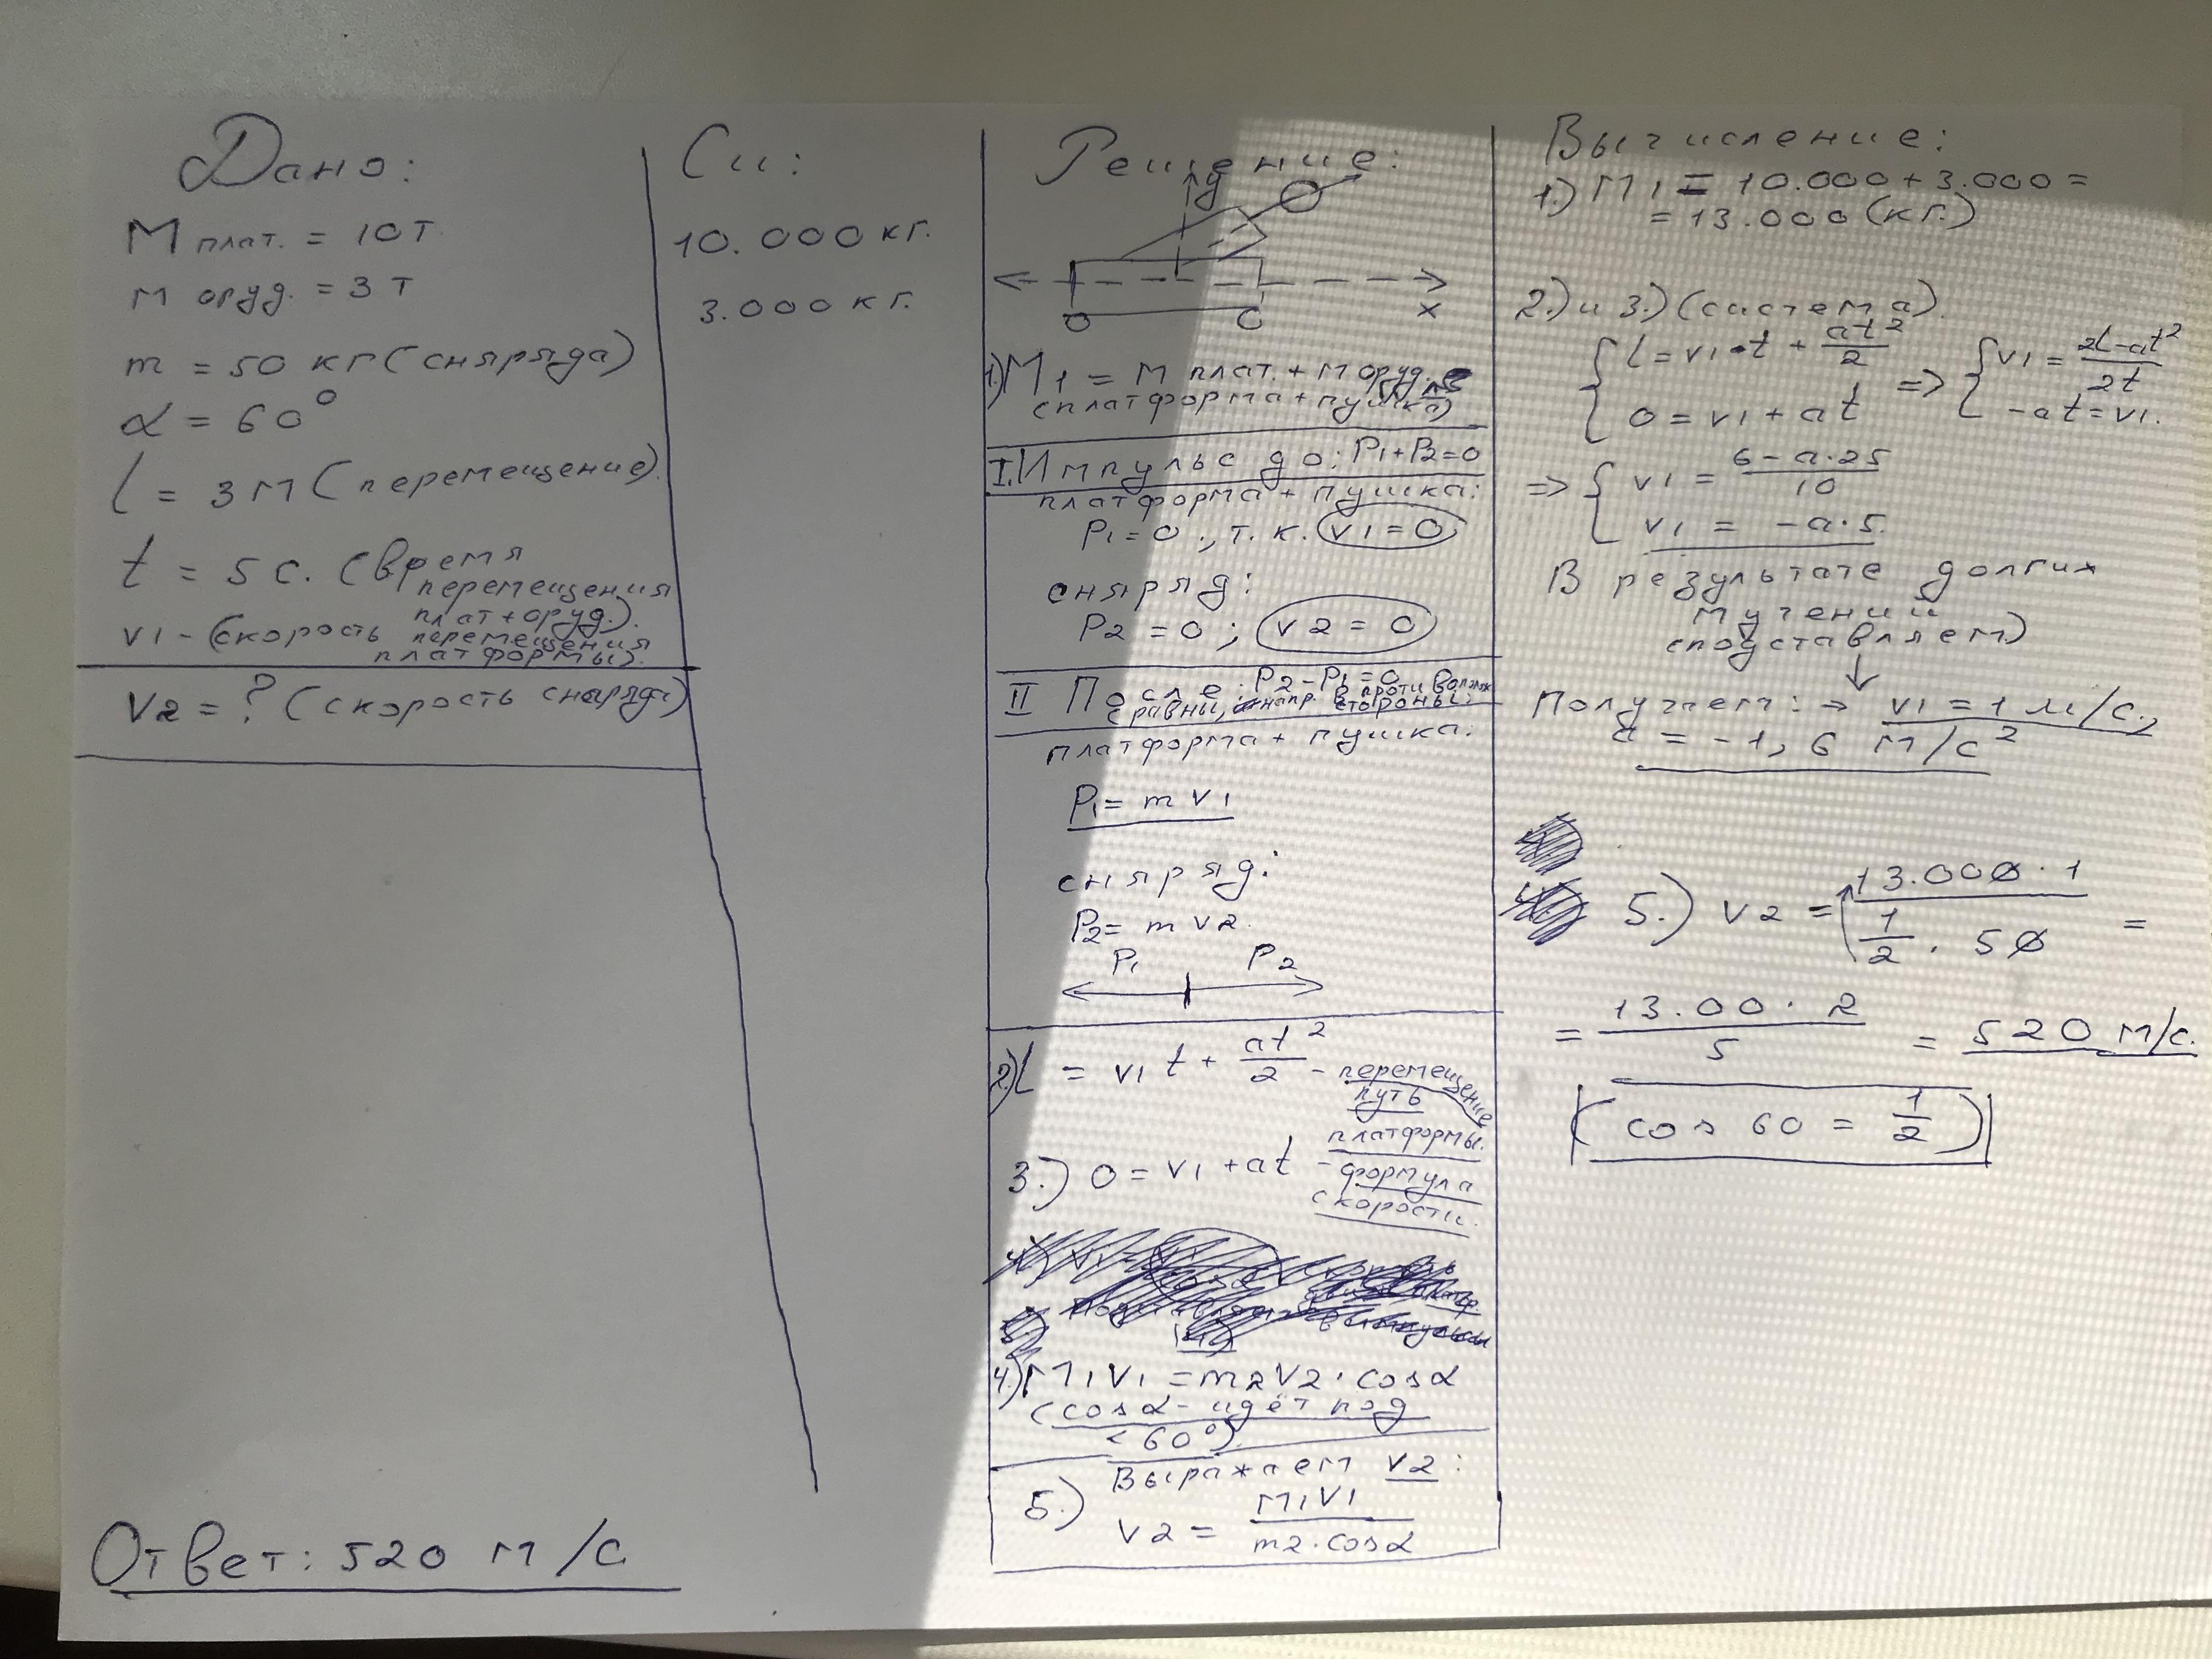 Дано:
M плат. = 10 т
m оруд. = 3 т
m = 50 кг (сняряда)
α = 60°
l = 3 м (перемещение)
t = 5 с. (время
перемещения
плат + оруд.).
v1 - (скорость перемещения
платформы).
v2 = ? (скорость снаряда)
Ответ: 520 м/с
Си:
10.000 кг.
3.000 кг.
Решение:
y
x
1.) M1 = m плат. + m оруд.
(платформа + пушка)
I. Импульс до: P1+P2=0
платформа + пушка:
P1=0., т.к. v1=0
сняряд:
P2 = 0; v2 = 0
II После: P2-P1=0
(равны, напр. в противополож
стороны):
платформа + пушка:
P1= m v1
сняряд:
P2= m v2
P1 P2
2.) l = v1 t + at²/2 - перемещение
путь
платформы.
3.) 0 = v1 + at - формула
скорости.
4.) M1V1 = m2V2 · cosα
(cosα - идёт под
< 60°)
Выражаем v2:
5.) v2 = M1V1 / m2·cosα
Вычисление:
1.) M1 = 10.000 + 3.000 =
= 13.000 (кг.)
2.) и 3.) (система).
{ l = v1·t + at²/2 => { v1 = 2l-at² / 2t
0 = v1 + at - at = v1.
=> { v1 = 6-a·25 / 10
v1 = -a·5.
В результате долгих
мучений
(подставляем)
↓
Получаем: → v1 = 1 м/с.,
a = -1,6 м/с²
5.) v2 = 13.000 · 1 / 1/2 · 50 =
= 13.00 · 2 / 5 = 520 м/с.
(cos 60 = 1/2)